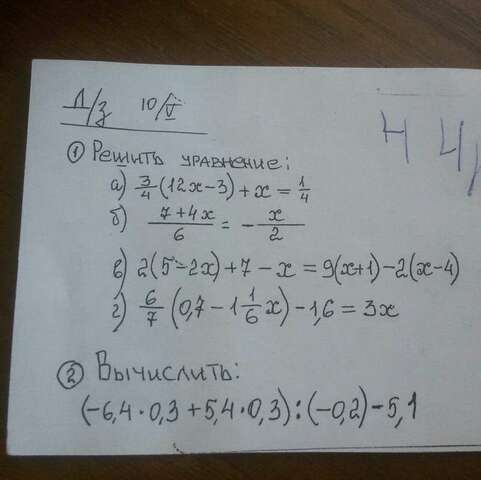 Д/з 10/V
① Решить уравнение:
а) 3/4 (12x-3) + x = 1/4
б) (7+4x)/6 = - x/2
в) 2(5-2x)+7-x = 9(x+1)-2(x-4)
г) 6/7 (0,7 - 1 1/6 x) - 1,6 = 3x
② Вычислить:
(-6,4·0,3+5,4·0,3):(-0,2)-5,1